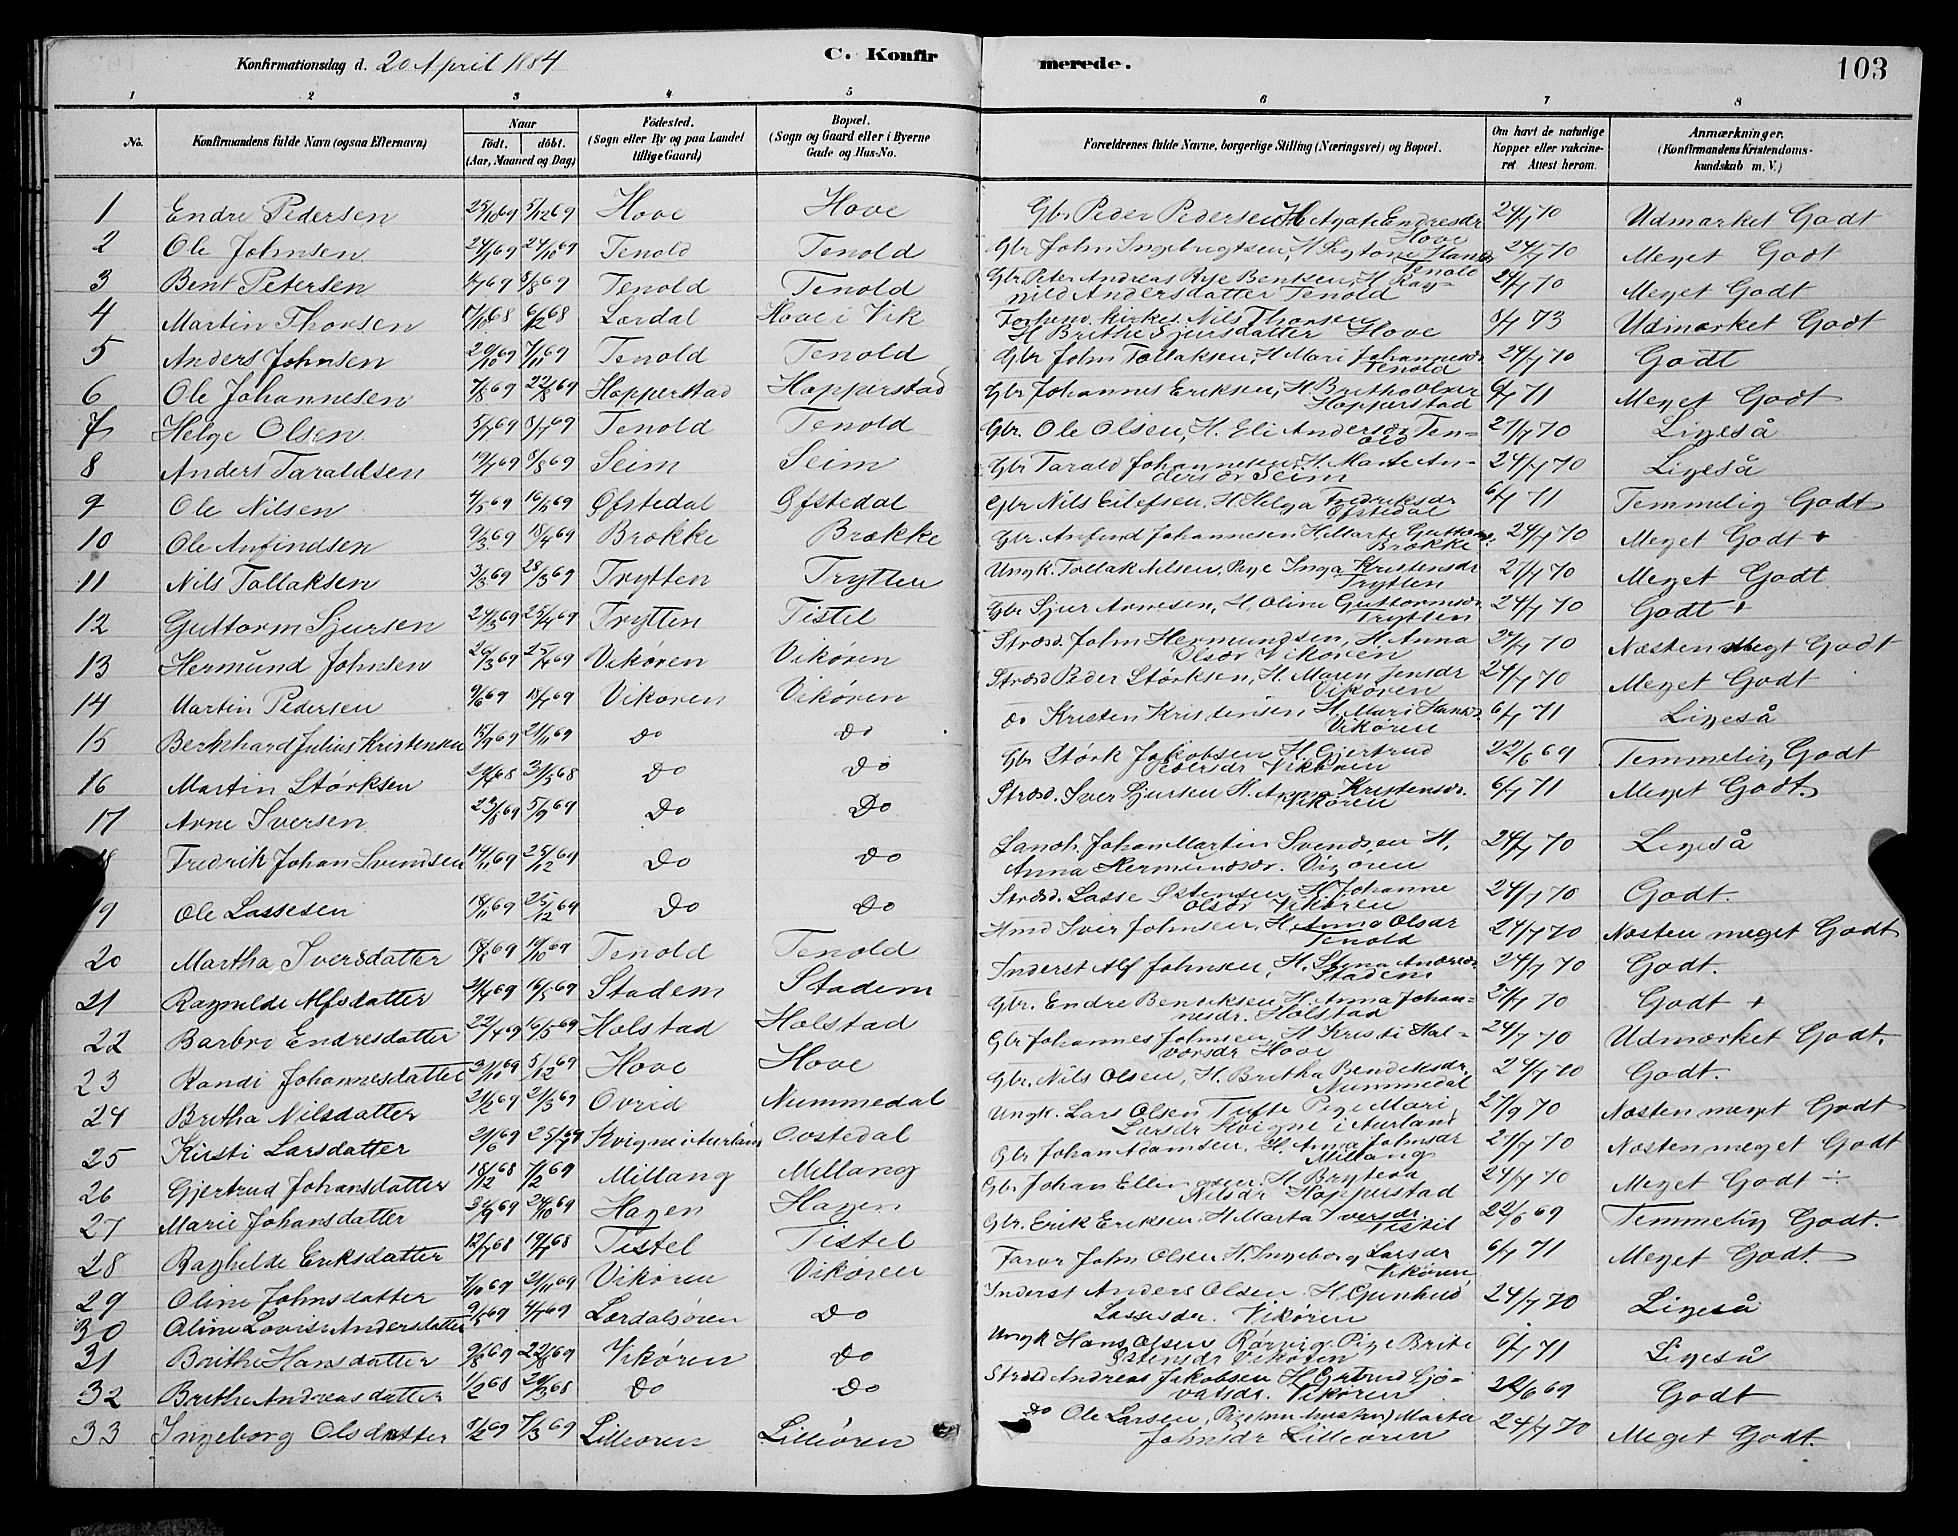 Konfirmationsdag d. 20 April 1884
C. Konfir
merede.
103
1 2 3 4 5 6 7 8
No.
Konfirmandens fulde Navn (ogsaa Efternavn)
Naar
födt. döbt.
(Aar, Maaned og Dag)
Födested.
(Sogn eller By og paa Landet
tillige Gaard)
Bopæl.
(Sogn og Gaard eller i Byerne
Gade og Hus-No.
Forældrenes fulde Navne, borgerlige Stilling (Næringsvei) og Bopæl.
Om havt de naturlige
Kopper eller vakcine-
ret Attest herom.
Anmærkninger.
(Konfirmandens Kristendoms-
kundskab m. V.)
1 Endre Pedersen 25/10 69 5/12 69 Hove Hove Gbr Peder Pedersen H Agate Endresdr Hove 24/7 70 Udmærket Godt
2 Ole Johnsen 24/9 69 24/10 69 Tenold Tenold Gbr John Ingebrigtsen, H Tenold 24/7 70 Meget Godt
3 Bent Petersen 8/8 69 Tenold Tenold Gbr Peter Andreas Rye Bentsen, H Rag-
nild Andersdatter Tenold 24/7 70 Meget Godt
4 Martin Thorsen 17/10 68 6/12 68 Lærdal Hove i Vik Nils Thorsen
H Brithe Sjursdatter Hove 8/7 73 Udmærket Godt
5 Anders Johnsen 20/10 69 7/11 69 Tenold Tenold Gbr John Tollaksen, H Mari Johannesdr Tenold 24/7 70 Godt
6 Ole Johannesen 7/8 69 22/8 69 Hopperstad Hopperstad Gbr Johannes Eriksen, H Britha Olsdr Hopperstad 6/7 71 Meget Godt
7 Helge Olsen 5/7 69 8/7 69 Tenold Tenold Gbr. Ole Olsen, H. Eli Andersdr Ten-
old 27/7 70 Ligeså
8 Anders Taraldsen 19/7 69 8/8 69 Seim Seim Gbr Tarald Johannesen H. Marte An-
dersdr Seim 24/7 70 Ligeså
9 Ole Nilsen 4/5 69 16/5 69 Øfstedal Øfstedal Gbr Nils Eilefsen, H Helga Fredriksdr Øfstedal 6/7 71 Temmelig Godt
10 Ole Anfindsen 9/3 69 18/4 69 Brække Brække Gbr. Anfind Johannesen H Marte Guttorms: Brække 24/7 70 Meget Godt +
11 Nils Tollaksen 3/3 69 28/3 69 Trytten Trytten Ungk. Tollak Nilsen, Pige Inga Kristensdr Trytten 27/7 70 Meget Godt
12 Guttorm Sjursen 24/3 69 25/4 69 Trytten Tistel Gbr Sjur Arnesen, H. Oline Guttormsdr. Trytten 24/7 70 Godt +
13 Hermund Johnsen 26/3 69 25/4 69 Vikøren Vikøren Strds. John Hermundsen, H Anna
Olsdr Vikøren 24/7 70 Næsten Meget Godt
14 Martin Pedersen 9/6 69 18/7 69 Vikøren Vikøren Strds Peder Størksen, H. Maren Jensdr
Vikøren 24/7 70 Meget Godt
15 Bernhard Julius Kristensen 15/9 69 21/11 69 do do do Kristen Kristensen H. Mari Hans:
Vikøren 6/7 71 Ligeså
16 Martin Størksen 29/4 68 31/5 68 Do Do Gbr Størk Jakobsen H. Gjertrud
Pedersdr Vikøren 22/6 69 Temmelig Godt
17 Arne Iversen 23/8 69 5/9 69 Do Do Strds. Iver Sjursen H. Anna Kristensdr.
Vikøren 6/7 71 Meget Godt.
18 Fredrik Johan Svendsen 14/11 69 25/12 69 Do Do Landh. Johan Martin Svendsen H.
Anna Hermundsdr. Vikøren 24/7 70 Ligeså
19 Ole Lassesen 18/11 69 25/12 69 Do Do Strds. Lasse Østensen H. Johanne
Olsdr Vikøren 24/7 70 Godt.
20 Martha Iversdatter 18/8 69 10/10 69 Tenold Tenold Hmd Iver Johnsen, H. Anna Olsdr
Tenold 24/7 70 Næsten meget Godt
21 Ragnilde Alfsdatter 21/4 69 16/5 69 Stadem Stadem Inderst Alf Johnsen, H. Stina Andersdr.
Stadem 24/7 70 Godt.
22 Barbro Endresdatter 22/4 69 16/5 69 Holstad Holstad Gbr. Endre Bendiksen H. Anna Johan-
nesdr. Holstad 24/7 70 Godt +
23 Randi Johannesdatter 31/10 69 5/12 69 Hove Hove Gbr Johannes Johnsen, H Kristi Hal-
vorsdr Hove 24/7 70 Udmærket Godt.
24 Britha Nilsdatter 21/2 69 21/3 69 Ovrid Nummedal Gbr. Nils Olsen, H. Britha Bendiksdr.
Nummedal 24/7 70 Godt.
25 Kirsti Larsdatter 21/6 69 25/7 69 Kvigne i Aurland Ovstedal Ungk. Lars Olsen Tufte Pige Mari
Larsdr Kvigne i Aurland 27/9 70 Næsten meget Godt
26 Gjertrud Johansdatter 18/12 68 7/2 69 Millang Millang Gbr Johan Adamsen, H. Anna Johnsdr
Millang 27/7 70 Næsten meget Godt
27 Marie Johansdatter 3/9 69 24/10 69 Hagen Hagen Gbr Johan Ellingsen, H.
Nilsdr Hopperstad 24/7 70 Meget Godt ÷
28 Raghilde Eriksdatter 12/7 68 19/7 68 Tistel Tistel Gbr. Erik Eriksen H Marta Iversdr.
Tistel 22/6 69 Temmelig Godt.
29 Oline Johnsdatter 7/10 69 21/11 69 Vikøren Vikøren Farver John Olsen H. Ingeborg Larsdr
Vikøren 6/7 71 Meget Godt.
30 Oline Lovise Andersdatter 9/5 69 4/7 69 Lærdalsøren Do Inderst Anders Olsen H Gunhild
Lassesdr. Vikøren 24/7 70 Ligeså
31 Brithe Hansdatter 9/8 69 22/8 69 Vikøren Do Ungk Hans Olsen Rørvig Pige Brite
Østensdr Vikøren 6/7 71 Ligeså
32 Brithe Andreasdatter 1/2 68 29/3 68 Do Do Strds Andreas Jakobsen H Gertrud Sjø-
vatsdr. Vikøren 22/6 69 Godt
33 Ingeborg Olsdatter 8/2 69 7/3 69 Lilleøren Lilleøren Do Ole Larsen, Pige Marta
Johnsdr Lilleøren 24/7 70 Meget Godt.